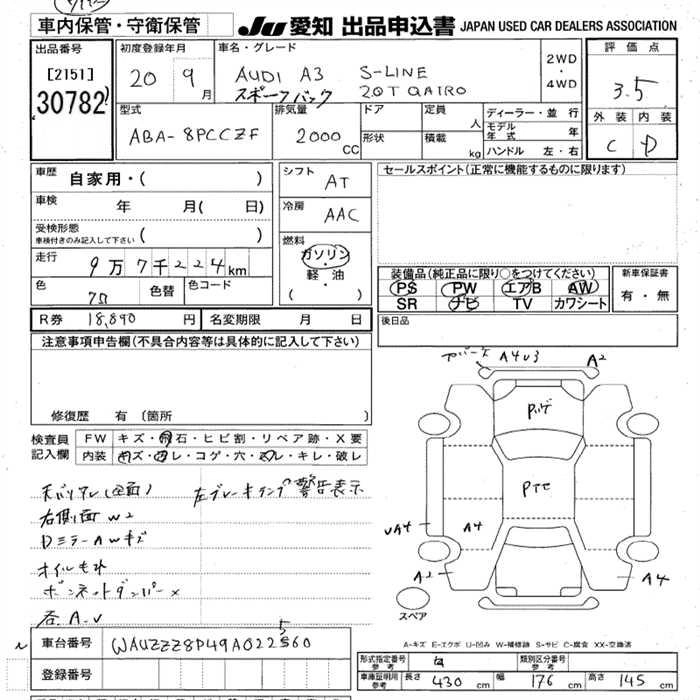 車内保管・守衛保管
JU 愛知 出品申込書 JAPAN USED CAR DEALERS ASSOCIATION
出品番号
[2151]
30782
初度登録年月
20 9月
車名・グレード
AUDI A3 S-LINE
スポーツバック 2.0T QAIRO
2WD
・
4WD
評価点
3.5
外装 内装
C D
型式
ABA-8PCCZF
排気量
2000 CC
ドア
形状
定員 人
積載 kg
ディーラー・並行
モデル年式 年
ハンドル 左・右
車歴 自家用・( )
車検 年 月( 日)
受検形態
車検付きのみ記入して下さい ( )
走行 9万7千224km
色
色替
色コード
R券 18,890 円
名変期限 月 日
シフト AT
冷房 AAC
燃料
ガソリン
・
軽油
( ・ )
セールスポイント(正常に機能するものに限ります)
装備品(純正品に限り○をつけてください)
PS PW エアB AW
SR ナビ TV カワシート
新車保証書
有・無
後日品
注意事項申告欄(不具合内容等は具体的に記入して下さい)
修復歴 有 (箇所
検査員
記入欄
FW キズ・飛石・ヒビ割・リペア跡・X要
内装 キズ・汚レ・コゲ・穴・スレ・キレ・破レ
左ブレーキランプ警告表示
右側面 W2
Dミラー AWキズ
オイルもれ
ボンネットダンパー×
A.V
A4U3
A2
Pハゲ
Pトビ
UA4
A4
A2
A4
スペア
A-キズ E-エクボ U-凹み W-補修跡 S-サビ C-腐食 XX-交換済
車台番号 WAUZZZ8P49A022560
5
登録番号
形式指定番号
参考
類別区分番号
参考
車庫証明用
参考
長さ 430 cm 幅 176 cm 高さ 145 cm